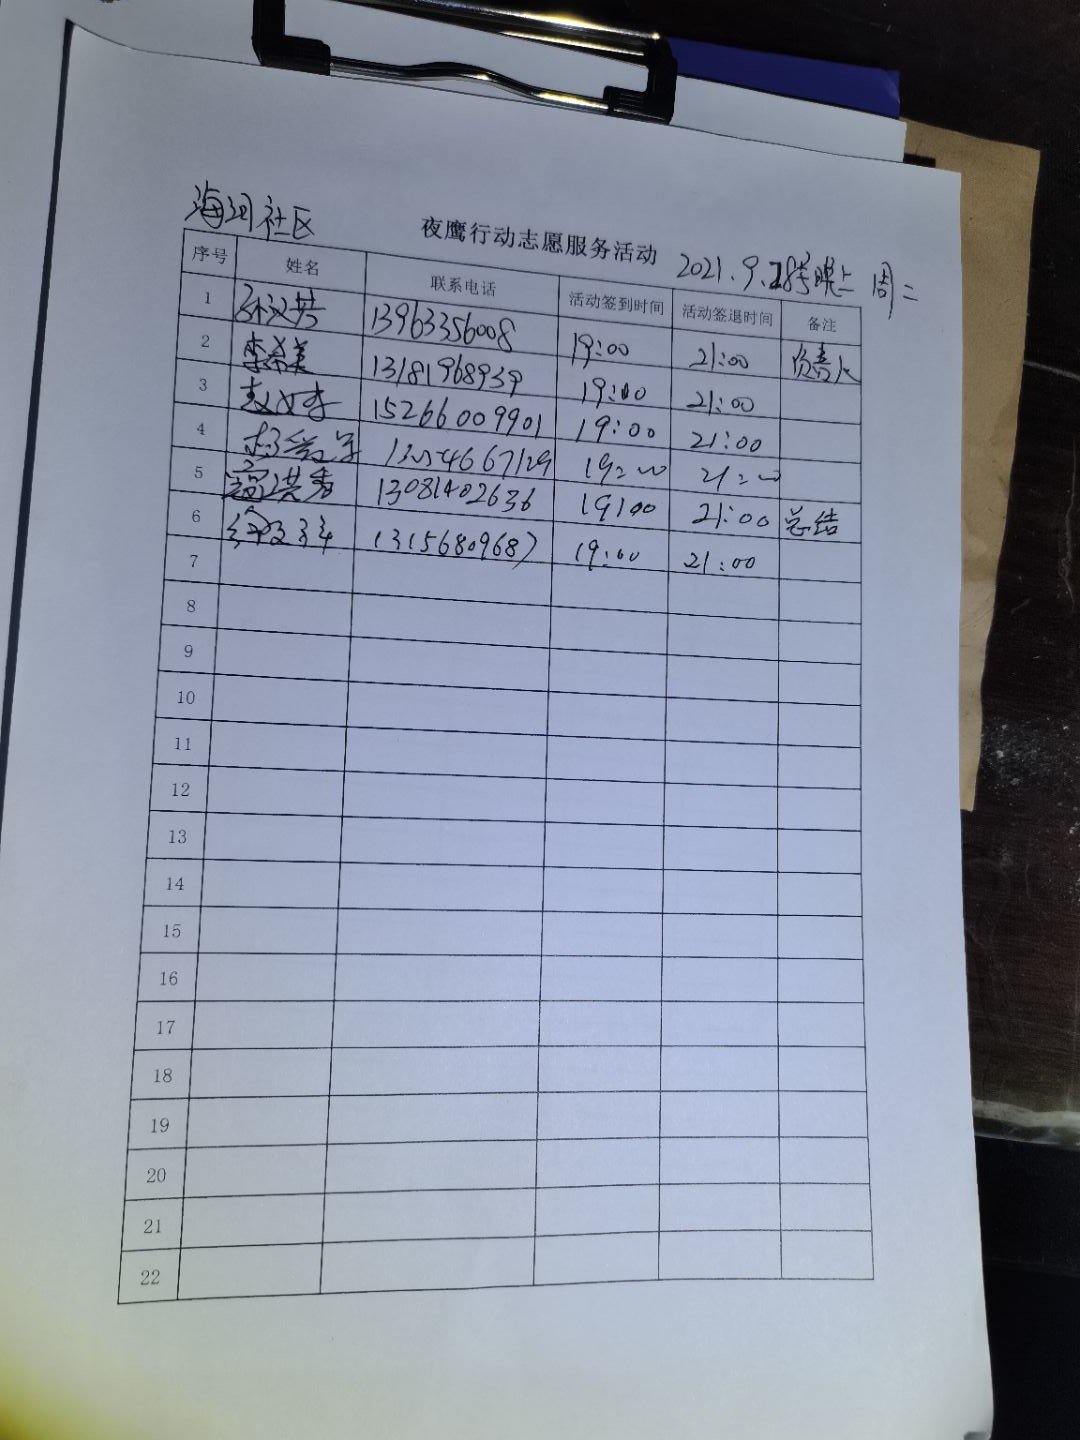 海河社区
夜鹰行动志愿服务活动 2021.9.28号晚上 周二
序号 姓名 联系电话 活动签到时间 活动签退时间 备注
1 13963356008 19:00 21:00 负责人
2 李希美 13181968939 19:00 21:00
3 15266009901 19:00 21:00
4 19:00 21:00
5 高洪秀 13081402636 19:00 21:00 总结
6 13156809687 19:00 21:00
7
8
9
10
11
12
13
14
15
16
17
18
19
20
21
22